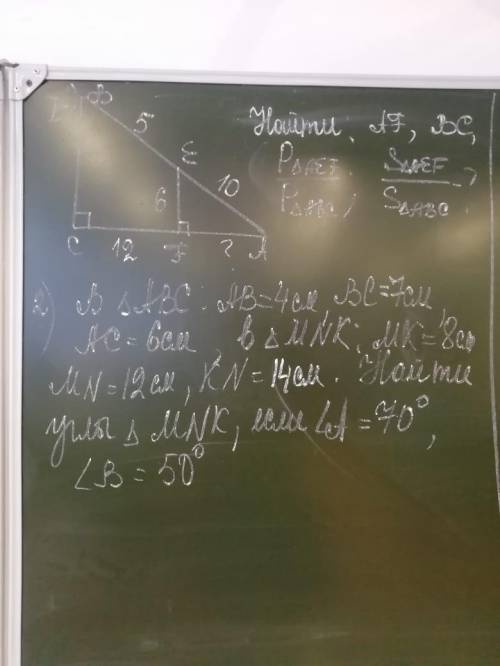 1) B
5
E
6
10
C 12 F ? A
Найти: AF, BC,
P△AEF / P△ABC, S△AEF / S△ABC.
2) В △ABC: AB=4см, BC=7см,
AC=6см, в △MNK: MK=8см
MN=12см, KN=14см. Найти
углы △MNK, если ∠A=70°,
∠B=50°